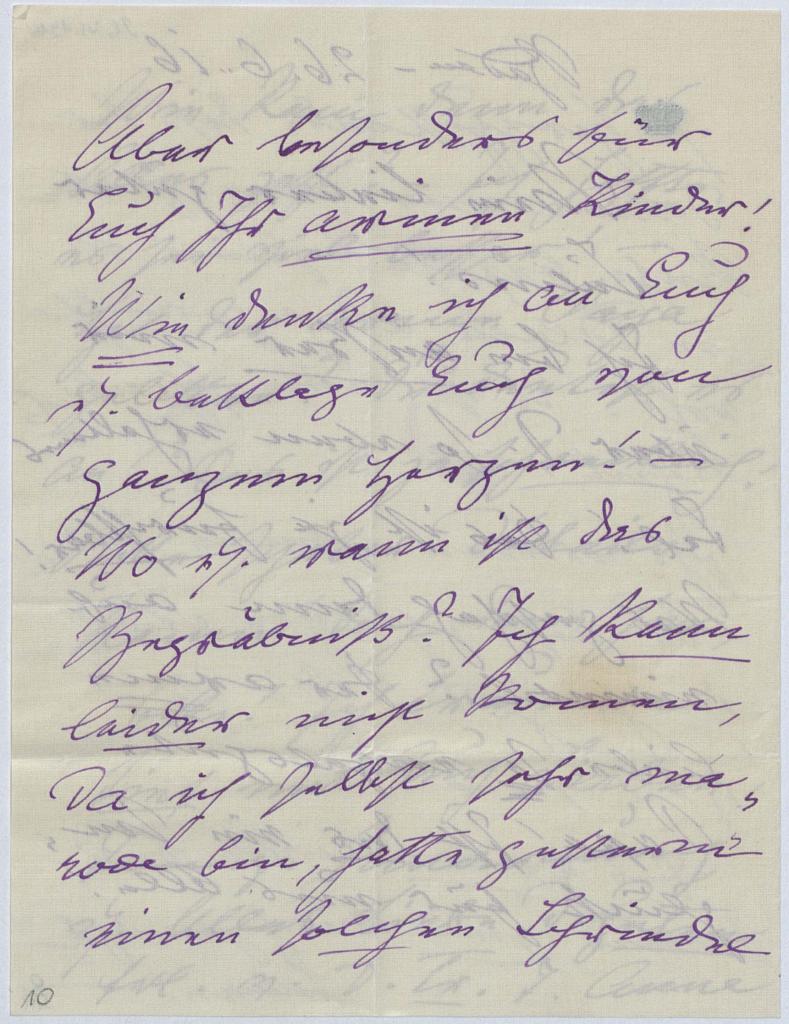 Aber besonders für
Euch Ihr armen Kinder!
Wie denke ich an Euch
u. beklage Euch von
ganzem Herzen! —
Wo u. wann ist das
Begräbniß? Ich kann
leider nicht komen,
da ich selbst sehr ma„
rode bin, hatte gestern
einen solchen Schwindel
10